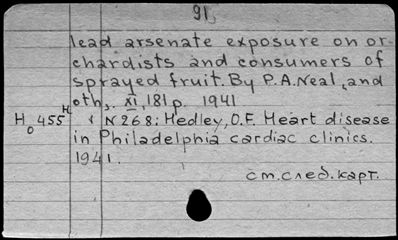 91
lead arsenate exposure on or-
chardists and consumers of
sprayed fruit. By P.A. Neal, and
oth,. XI, 181 p. 1941
Ho 455 H N 268: Hedley, O.F. Heart disease
in Philadelphia cardiac clinics.
1941.
см. след. карт.